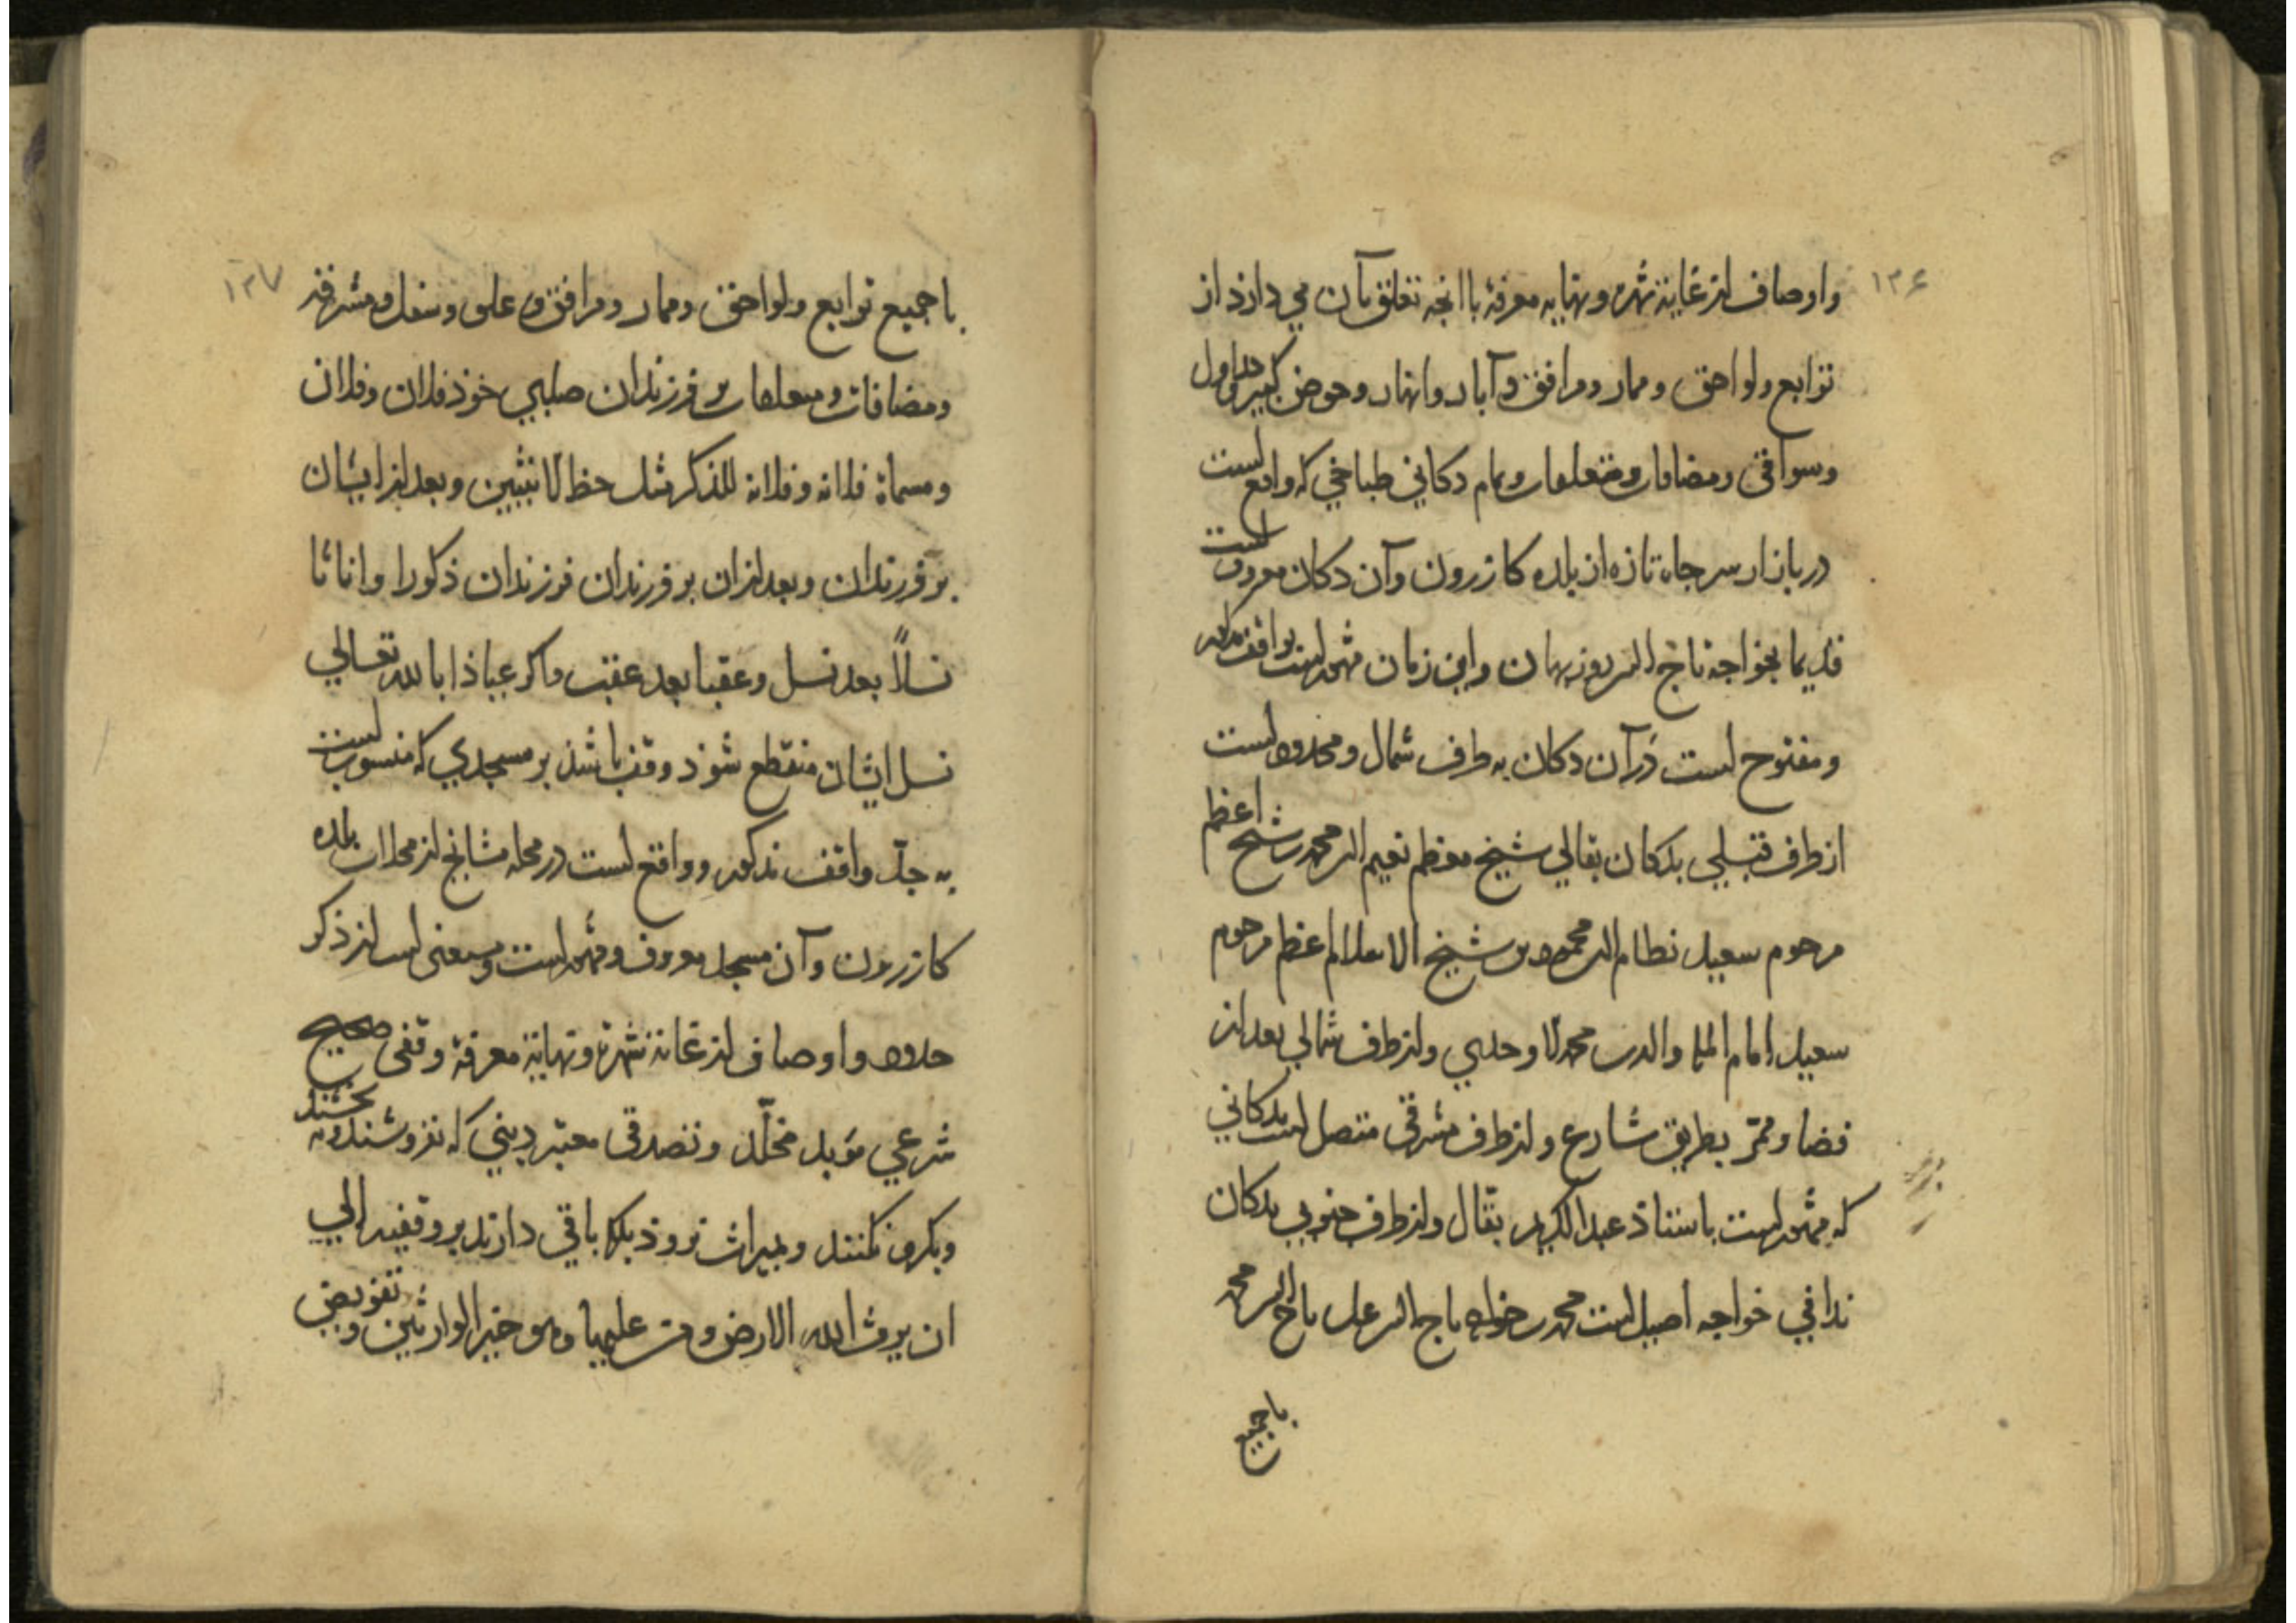 ۱۳۶
واوصاف از غایة شهرة ونهایه معرفة باانچه تعلق بآن می دارذ از
توابع ولواحق وممار ومرافق وآبار وانهار وحوض کبیر وجداول
وسواقی ومضافات ومتعلقات وتمام دکانی طباخی که واقع است
در بازار سر جاه تازه از بلده کازرون وآن دکان معروفست
قدیما بخواجه تاج الدین روزبهان واین زمان مشهورست بواقف مذکور
ومفتوح است در آن دکان به طرف شمال ومحدود است
از طرف قبلی بدکان بقالی شیخ معظم نعیم الدین محمد بن شیخ اعظم
مرحوم سعید نظام الدین محمود بن شیخ الاسلام اعظم مرحوم
سعید امام الملة والدین محمد الاوحدی واز طرف شمالی بعد از
فضا وممرّ بطریق شارع واز طرف مشرقی متصل است بدکانی
که مشهورست باستاذ عبد الکریم بقال واز طرف جنوبی بدکان
ندافی خواجه اصیل است محمد بن خواجه تاج الدین علی تاج الدین محمد
باجمیع
۱۳۷
باجمیع توابع ولواحق وممار ومرافق وعلی وسفل ومشرفه
ومضافات ومتعلقات بر فرزندان صلبی خوذ فلان وفلان
ومسماة فلانه وفلانه للذکر مثل حظ الانثیین وبعد از ایشان
بر فرزندان وبعد از ان بر فرزندان فرزندان ذکورا واناثا
نسلاً بعد نسل وعقبا بعد عقب واکر عیاذا بالله تعالی
نسل ایشان منقطع شوذ وقف باشذ بر مسجدی که منسوبست
به جدّ واقف مذکور وواقع است در محله مشایخ از محلات بلده
کازرون وآن مسجد معروف ومشهور است ومستغنی است از ذکر
حدود واوصاف از غایة شهرة ونهایة معرفة وقفی صحیح
شرعی مؤبد مخلّد وتصدقی معتبر دینی که نفروشند ونه بخشند
وبکرو نکنند وبمیراث نروذ بلکه باقی دارند بر وقفیه الی
ان یرث الله الارض ومن علیها وهو خیر الوارثین وتفویض